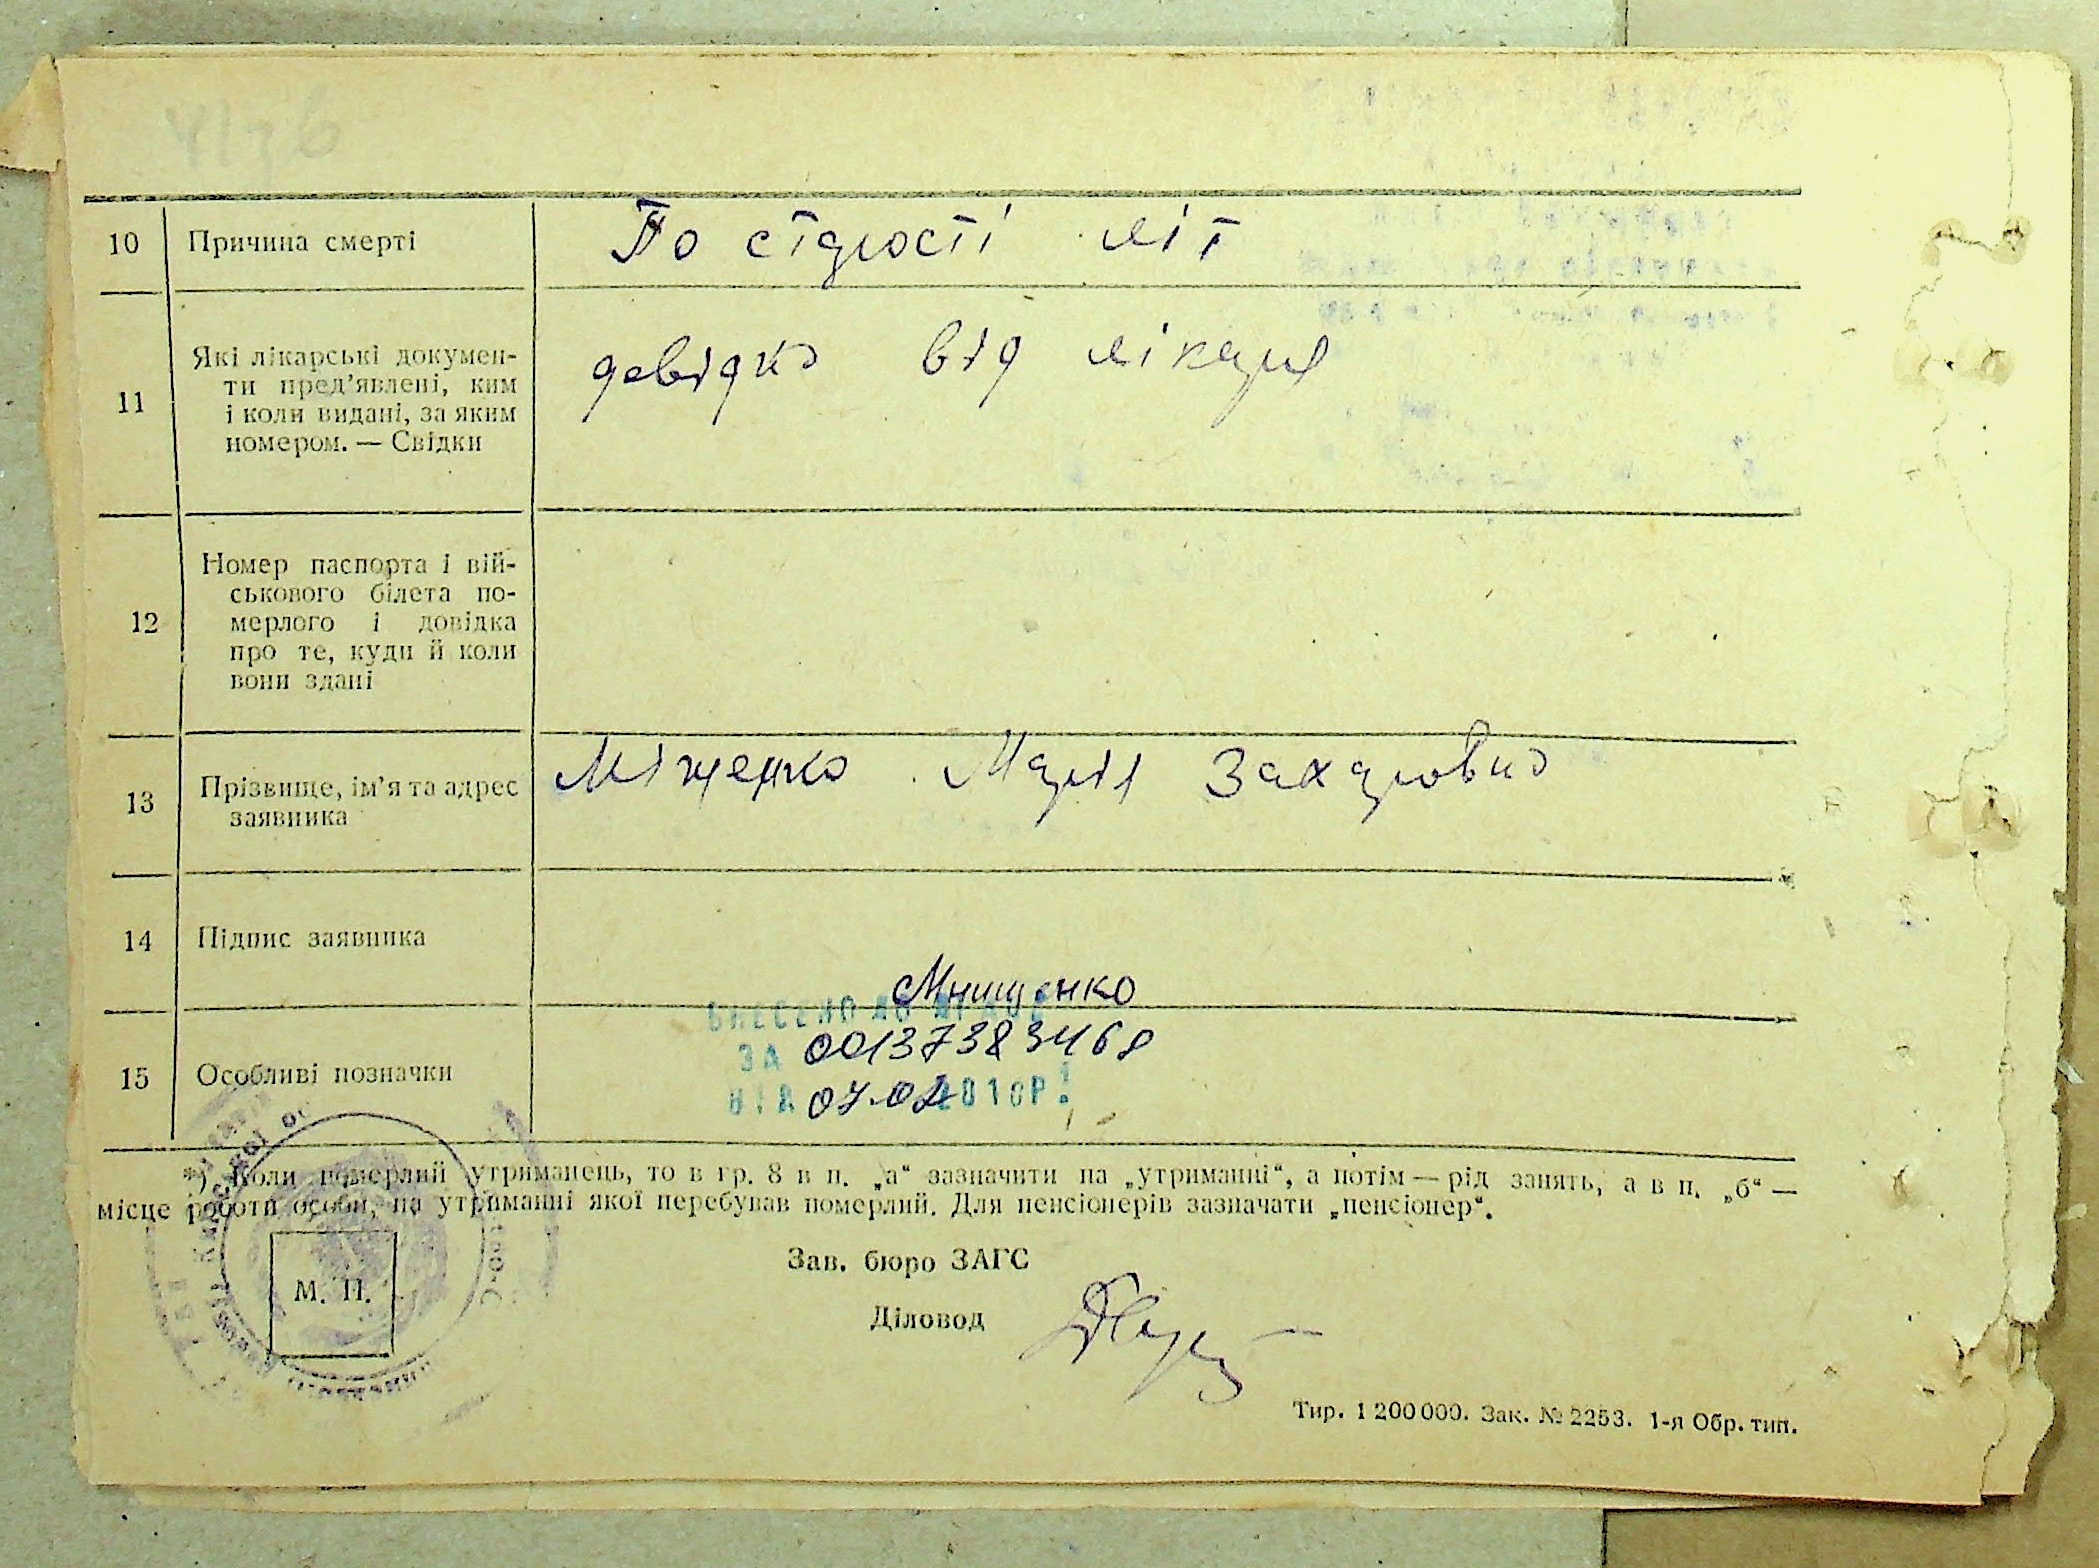 10 Причина смерті По старості літ
11 Які лікарські докумен-
ти пред’явлені, ким
і коли видані, за яким
номером. — Свідки
довідка від лікаря
12 Номер паспорта і вій-
ськового білета по-
мерлого і довідка
про те, куди й коли
вони здані
13 Прізвище, ім’я та адрес
заявника
Міщенко Марія Захаровна
14 Підпис заявника
Мищенко
ВНЕСЕНО ДО
ЗА 00137383468
15 Особливі позначки
ВІД 07.02 2018Р.
*) Коли померлий утриманець, то в гр. 8 в п. „а“ зазначити на „утриманні“, а потім — рід занять, а в п. „б“ —
місце роботи особи, на утриманні якої перебував померлий. Для пенсіонерів зазначати „пенсіонер“.
Зав. бюро ЗАГС
М. П.
Діловод
Тир. 1 200 000. Зак. № 2253. 1-я Обр. тип.